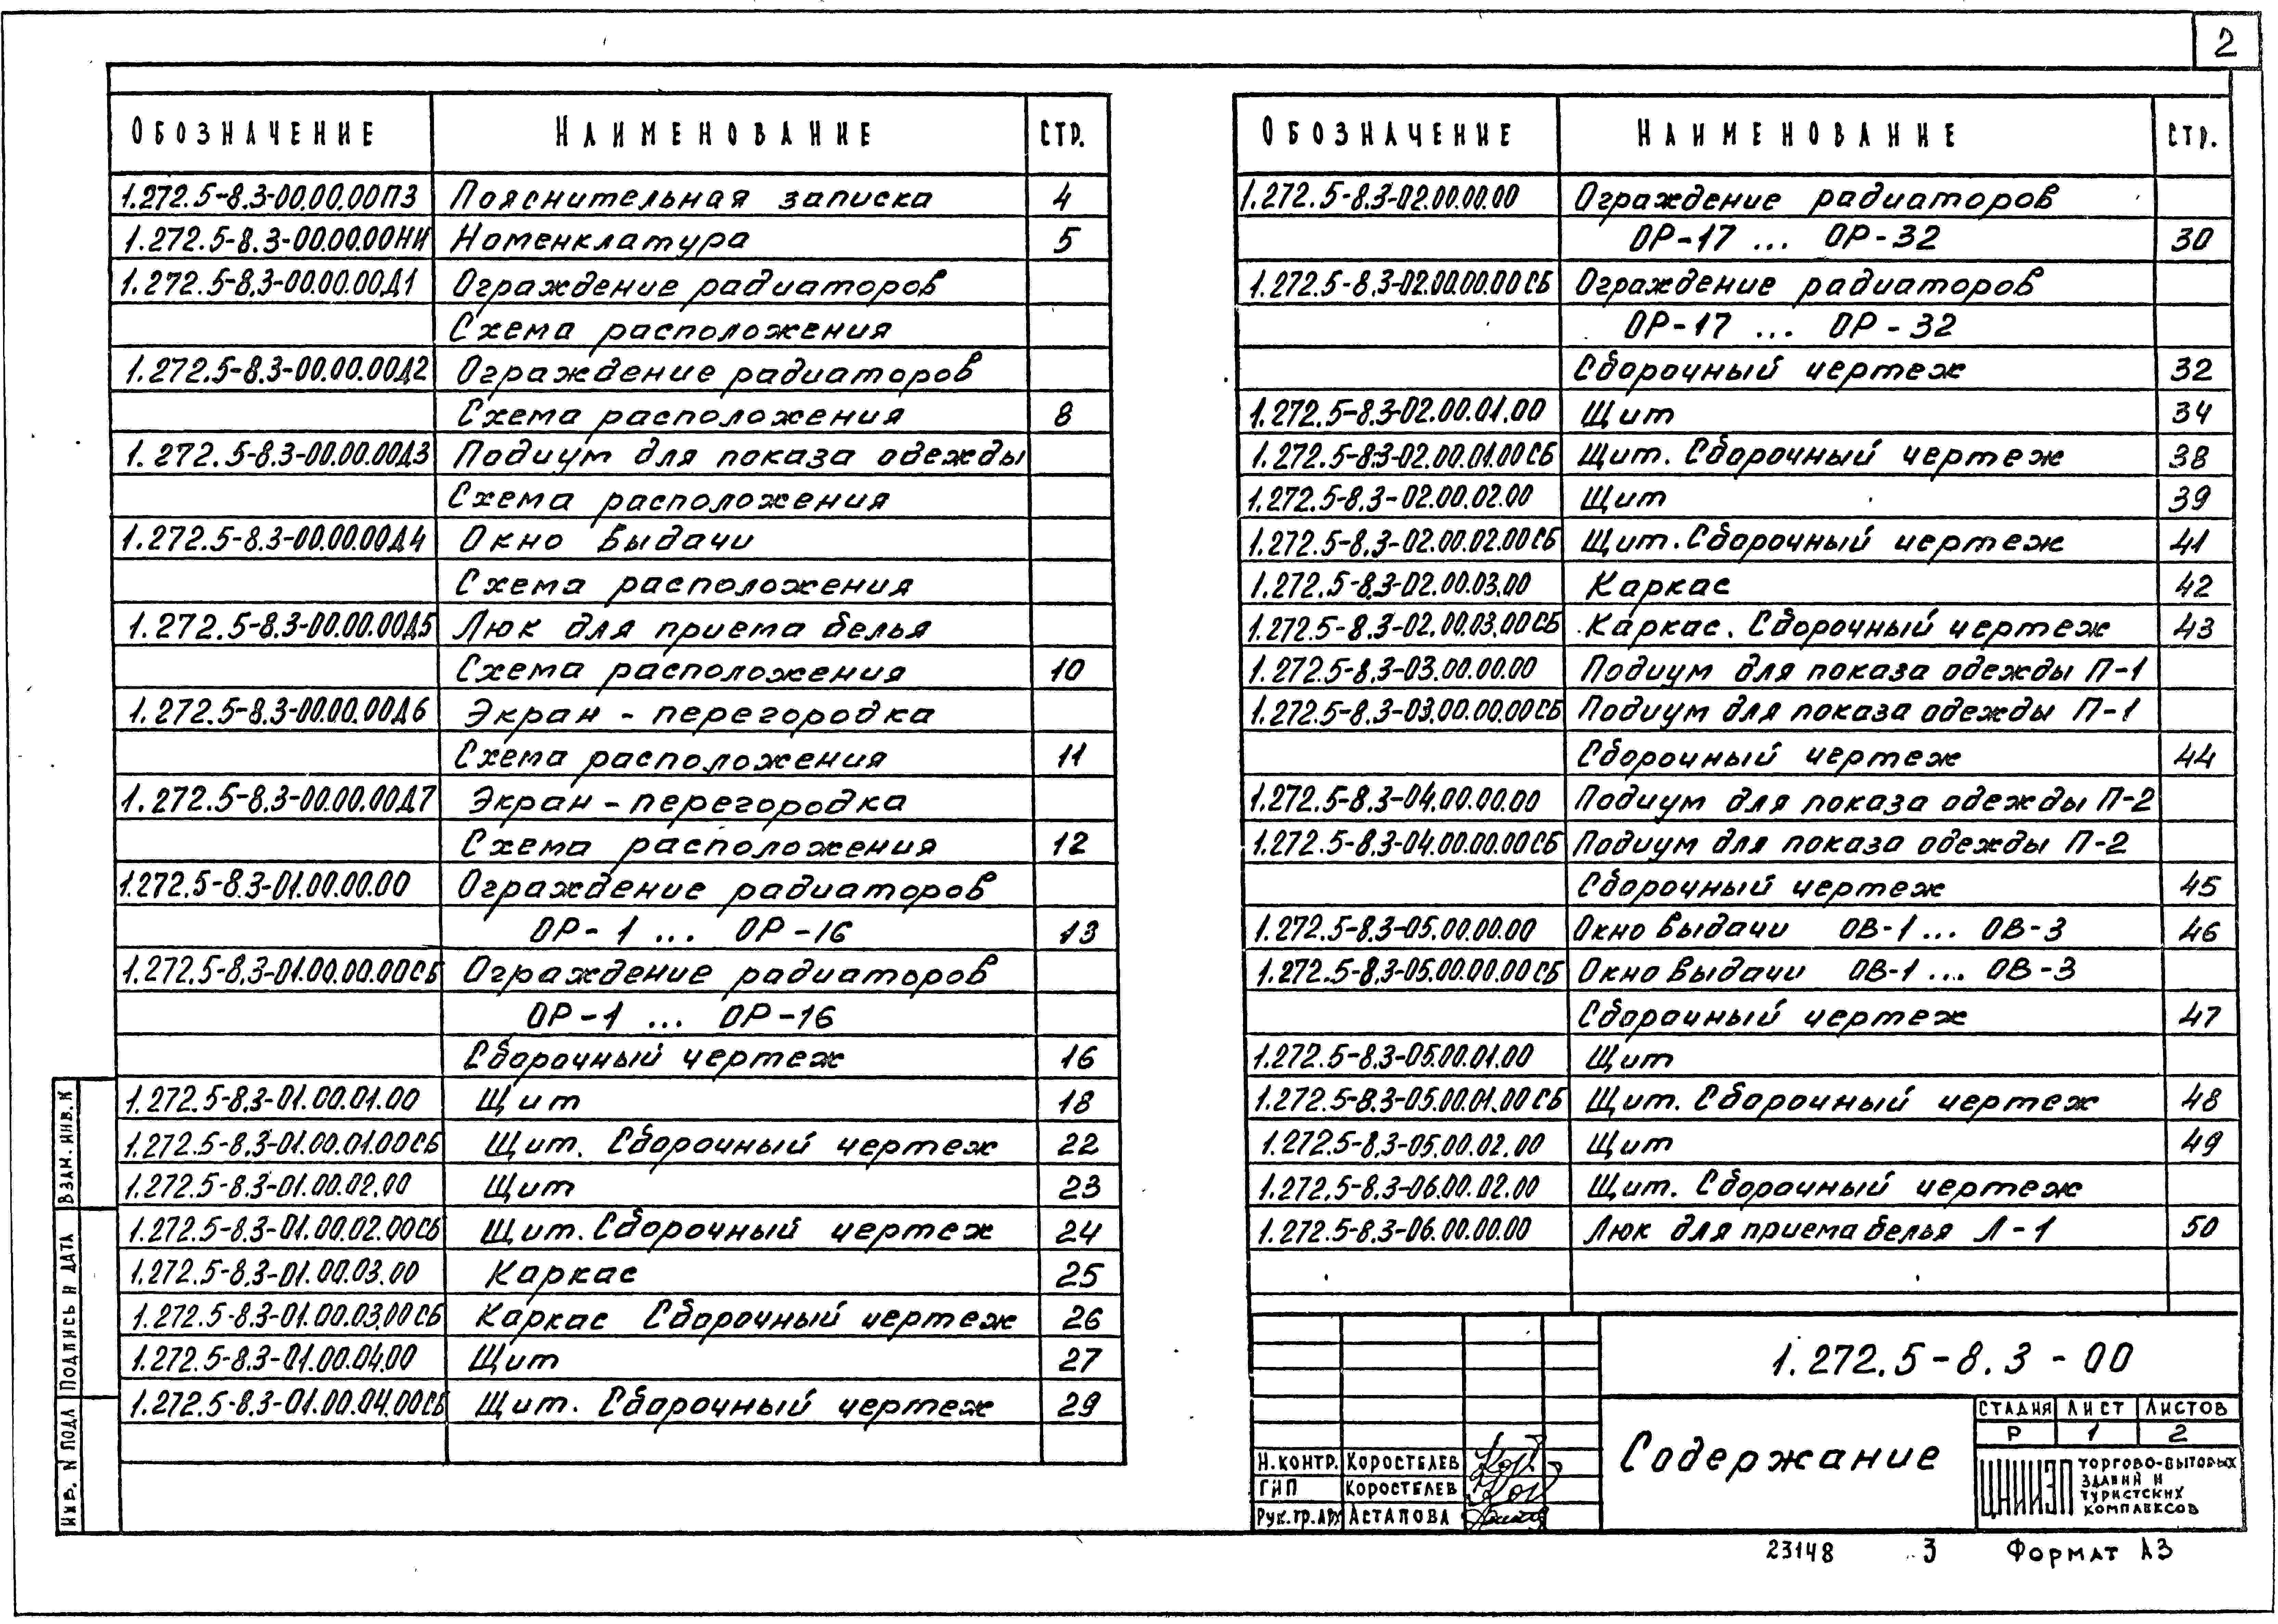 2
ОБОЗНАЧЕНИЕ НАИМЕНОВАНИЕ СТР.
1.272.5-8.3-00.00.00ПЗ Пояснительная записка 4
1.272.5-8.3-00.00.00НИ Номенклатура 5
1.272.5-8.3-00.00.00Д1 Ограждение радиаторов
Схема расположения
1.272.5-8.3-00.00.00Д2 Ограждение радиаторов
Схема расположения 8
1.272.5-8.3-00.00.00Д3 Подиум для показа одежды
Схема расположения
1.272.5-8.3-00.00.00Д4 Окно выдачи
Схема расположения
1.272.5-8.3-00.00.00Д5 Люк для приема белья
Схема расположения 10
1.272.5-8.3-00.00.00Д6 Экран - перегородка
Схема расположения 11
1.272.5-8.3-00.00.00Д7 Экран - перегородка
Схема расположения 12
1.272.5-8.3-01.00.00.00 Ограждение радиаторов
ОР-1 ... ОР-16 13
1.272.5-8.3-01.00.00.00СБ Ограждение радиаторов
ОР-1 ... ОР-16
Сборочный чертеж 16
1.272.5-8.3-01.00.01.00 Щит 18
1.272.5-8.3-01.00.01.00СБ Щит. Сборочный чертеж 22
1.272.5-8.3-01.00.02.00 Щит 23
1.272.5-8.3-01.00.02.00СБ Щит. Сборочный чертеж 24
1.272.5-8.3-01.00.03.00 Каркас 25
1.272.5-8.3-01.00.03.00СБ Каркас Сборочный чертеж 26
1.272.5-8.3-01.00.04.00 Щит 27
1.272.5-8.3-01.00.04.00СБ Щит. Сборочный чертеж 29
ОБОЗНАЧЕНИЕ НАИМЕНОВАНИЕ СТР.
1.272.5-8.3-02.00.00.00 Ограждение радиаторов
ОР-17 ... ОР-32 30
1.272.5-8.3-02.00.00.00СБ Ограждение радиаторов
ОР-17 ... ОР-32
Сборочный чертеж 32
1.272.5-8.3-02.00.01.00 Щит 34
1.272.5-8.3-02.00.01.00СБ Щит. Сборочный чертеж 38
1.272.5-8.3-02.00.02.00 Щит 39
1.272.5-8.3-02.00.02.00СБ Щит. Сборочный чертеж 41
1.272.5-8.3-02.00.03.00 Каркас 42
1.272.5-8.3-02.00.03.00СБ Каркас. Сборочный чертеж 43
1.272.5-8.3-03.00.00.00 Подиум для показа одежды П-1
1.272.5-8.3-03.00.00.00СБ Подиум для показа одежды П-1
Сборочный чертеж 44
1.272.5-8.3-04.00.00.00 Подиум для показа одежды П-2
1.272.5-8.3-04.00.00.00СБ Подиум для показа одежды П-2
Сборочный чертеж 45
1.272.5-8.3-05.00.00.00 Окно выдачи ОВ-1 ... ОВ-3 46
1.272.5-8.3-05.00.00.00СБ Окно выдачи ОВ-1 ... ОВ-3
Сборочный чертеж 47
1.272.5-8.3-05.00.01.00 Щит
1.272.5-8.3-05.00.01.00СБ Щит. Сборочный чертеж 48
1.272.5-8.3-05.00.02.00 Щит 49
1.272.5-8.3-06.00.02.00 Щит. Сборочный чертеж
1.272.5-8.3-06.00.00.00 Люк для приема белья Л-1 50
1.272.5-8.3-00
Содержание
СТАДИЯ ЛИСТ ЛИСТОВ
Р 1 2
Н.КОНТР. КОРОСТЕЛЕВ
ГИП КОРОСТЕЛЕВ
РУК.ГР.АРХ АСТАПОВА
ЦНИИЭП
ТОРГОВО-БЫТОВЫХ
ЗДАНИЙ И
ТУРИСТСКИХ
КОМПЛЕКСОВ
ИНВ. N ПОДЛ ПОДПИСЬ И ДАТА ВЗАМ. ИНВ. N
23148 3 ФОРМАТ А3